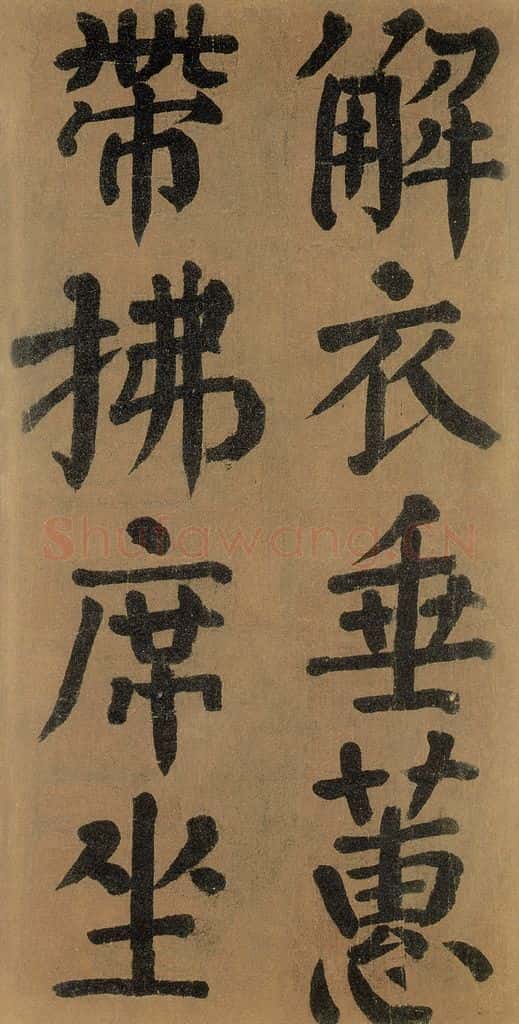 解衣垂蕙
帶拂席坐
Shufawang.CN